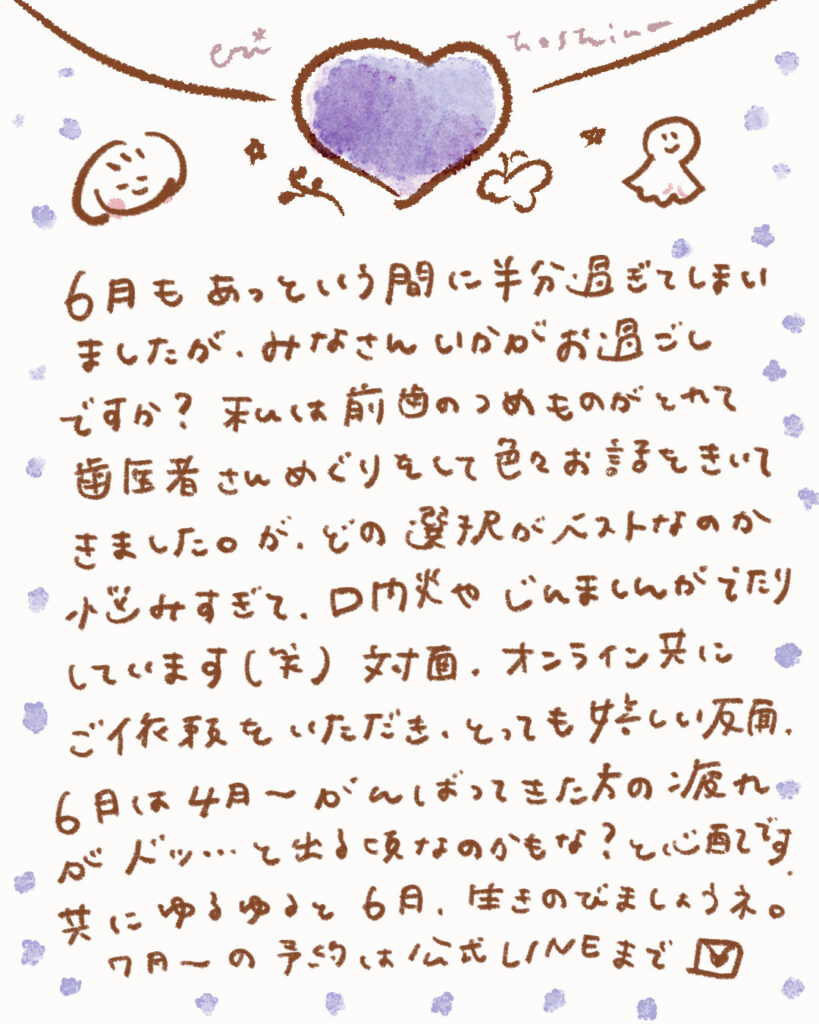 eri hoshino
6月も あっという間に半分過ぎてしまい
ましたが、みなさん いかがお過ごし
ですか? 私は前歯のつめものがとれて
歯医者さんめぐりをして色々お話をきいて
きました。が、どの選択がベストなのか
悩みすぎて、口内炎や じんましんがでたり
しています(笑) 対面、オンライン共に
ご依頼をいただき、とっても嬉しい反面、
6月は4月〜がんばってきた方の疲れ
がドッ…と出る頃なのかもな?と心配です.
共にゆるゆると 6月、生きのびましょうネ。
7月〜の予約は公式LINEまで